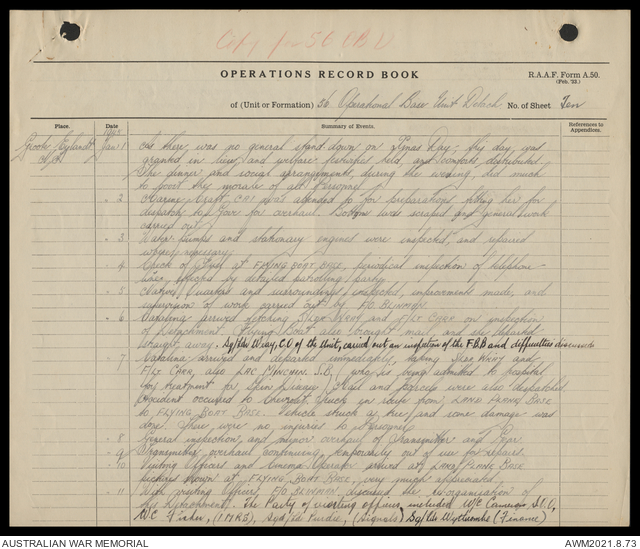 Copy for 56 OBU
OPERATIONS RECORD BOOK
R.A.A.F. Form A.50.
(Feb. '23.)
of (Unit or Formation) 56 Operational Base Unit Detach No. of Sheet Ten
Place. Date Summary of Events. References to Appendices.
1945
Groote Eylandt Jan. 1 As there was no general stand down on Xmas Day, this day was
granted in lieu, and welfare features held, and comforts distributed.
The dinner and social arrangements, during the evening, did much
to boost the morale of all Personnel
" 2 Marine Craft, was attended to for preparations fitting her for
dispatch to Gove for overhaul. Bottom was scraped and general work
carried out.
" 3 Water pumps and stationary engines were inspected, and repaired
where necessary.
" 4 Check of at FLYING BOAT BASE, periodical inspection of telephone
lines, effected by detailed patrolling party.
" 5 Native Quarters and surroundings inspected, improvements made, and
supervision of work carried out by F/O BLINMAN.
" 6 Catalina arrived S/Ldr WRAY and F/Lt CARR on inspection
of Detachment. Flying Boat also brought mail, and she departed
straight away. Sq/Ldr Wray, C.O of the Unit, carried out an inspection of the F.B.B and difficulties discussed
" 7 Catalina arrived and departed immediately, taking S/Ldr WRAY and
F/Lt CARR, also LAC MINCHIN. S.B. (who is being admitted to hospital
for treatment for Skin Disease) Mail and parcels were also despatched.
Accident occurred to Chevrolet Truck en route from LAND PLANE BASE
to FLYING BOAT BASE. Vehicle struck a tree and some damage was
done. There were no injuries to Personnel
" 8 General inspection, and minor overhaul of Transmitter and
" 9 Transmitter overhaul continuing, temporarily out of use for repairs.
" 10 Visiting Officers and Cinema Operator arrived at LAND PLANE BASE
pictures shown at FLYING BOAT BASE, very much appreciated.
" 11 With visiting Officers, F/O BLINMAN, discussed the reorganisation of
his Detachment. The Party of visiting officers, included W/C Cameron
W/C Fisher, Sqd/Ldr Purdie, (Signals) Sq/Ldr Wyclombe (Finance)
AUSTRALIAN WAR MEMORIAL
AWM2021.8.73